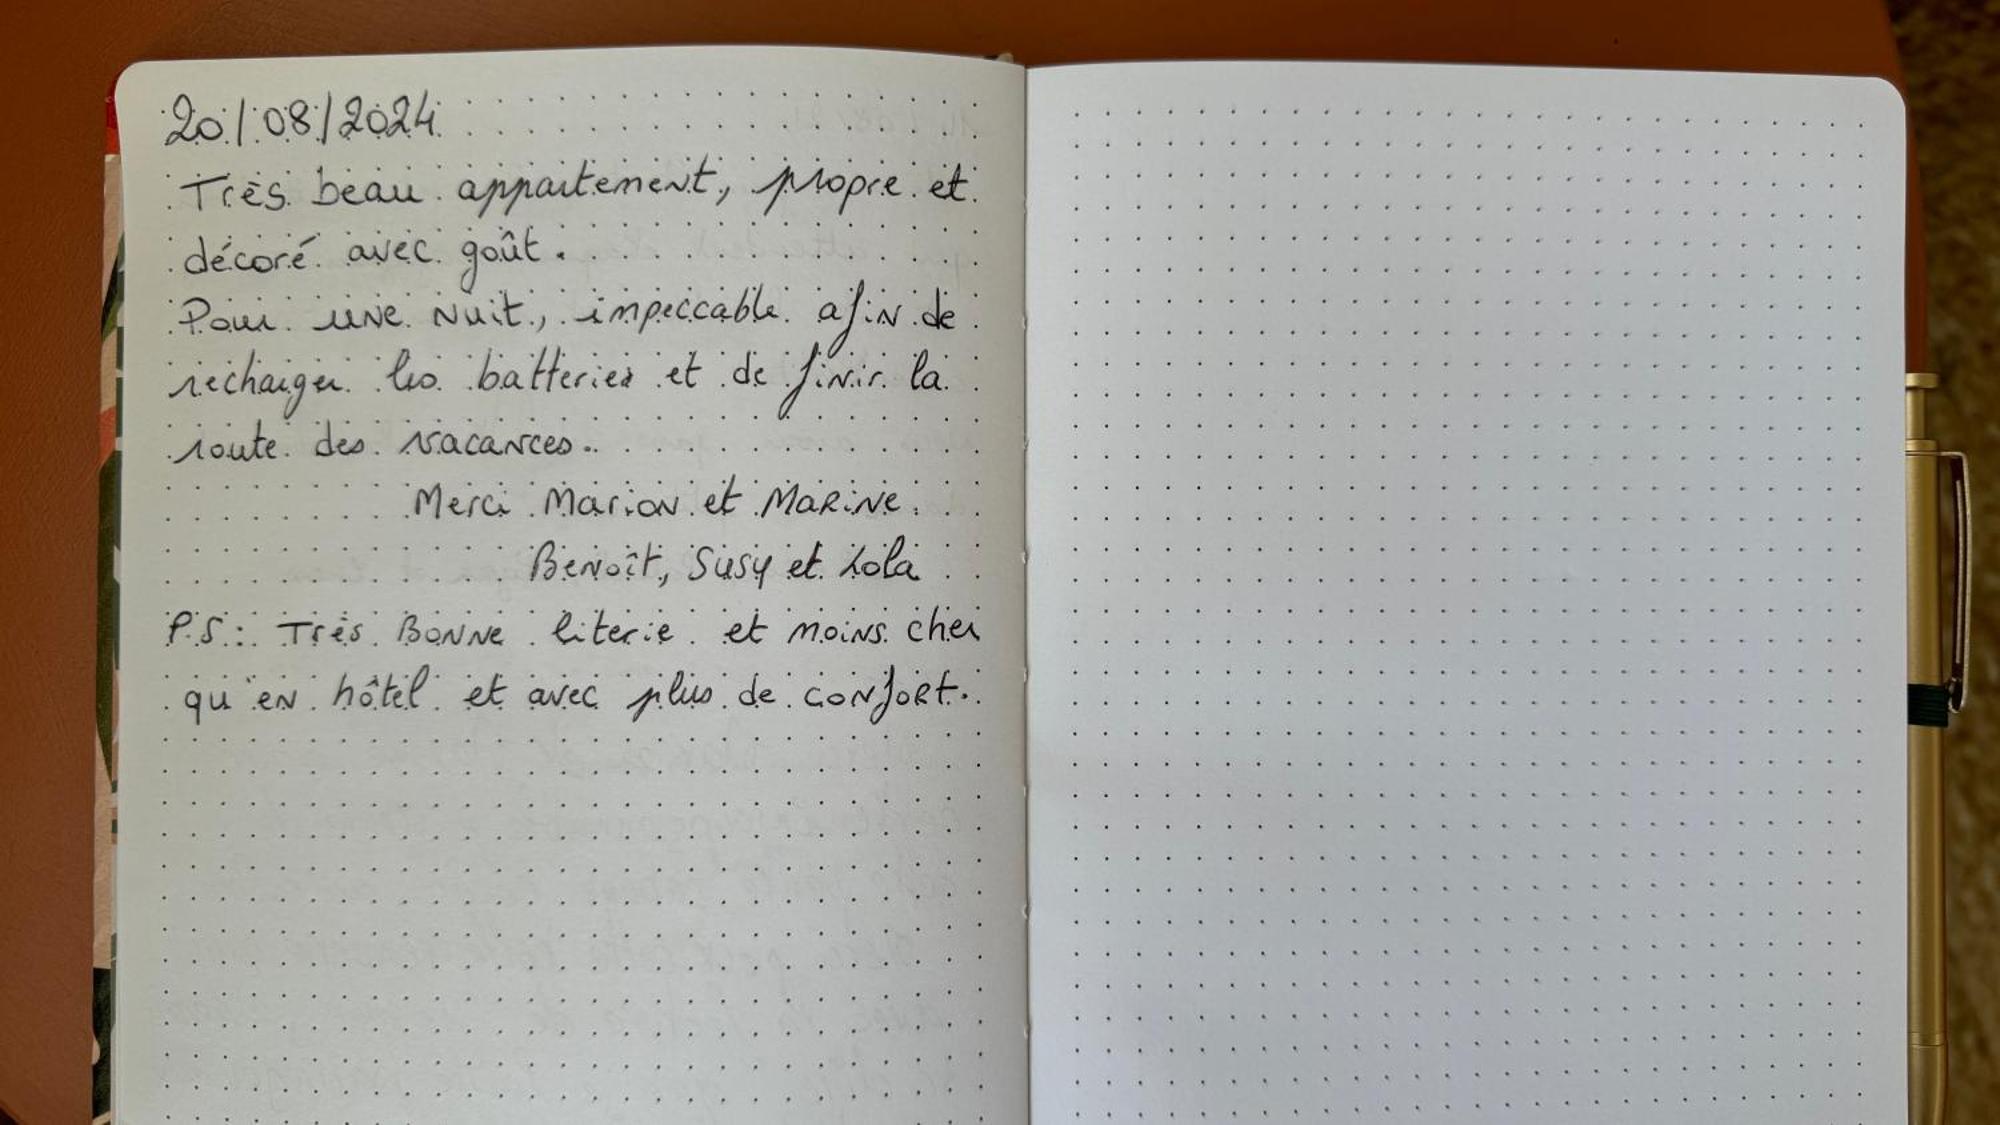 20/08/2024
Très beau appartement, propre et
décoré avec goût.
Pour une nuit, impeccable afin de
recharger les batteries et de finir la
route des vacances..
Merci Marion et Marine.
Benoît, Susy et Lola
P.S: Très Bonne literie et moins cher
qu'en hôtel et avec plus de confort.